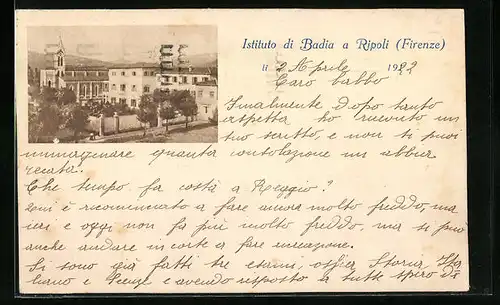 Istituto di Badia a Ripoli (Firenze)
li 2 Aprile 1922
Caro babbo
Finalmente dopo tanto
aspetta ho ricevuto un
tuo scritto, e non ti puoi
immaginare quanta consolazione mi abbia
recata.
Che tempo fa costà a Reggio?
è ricominciato a fare ancora molto freddo, ma
ieri e oggi non fa più molto freddo, ma si può
anche andare in corte a fare ricreazione.
Si sono già fatti tre esami, ossia Storia Ita
liano e e avendo risposto a tutte spero di